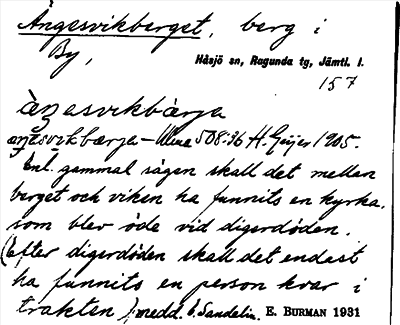 Ångesvikberget, berg i
By,
Håsjö sn, Ragunda tg, Jämtl. l.
157
àŋesvikbàrja
aŋesvikbærja – Ulma 508:36 H. Geijer 1905.
Enl. gammal sägen skall det mellan
berget och viken ha funnits en kyrka,
som blev öde vid digerdöden.
(efter digerdöden skall det endast
ha funnits en person kvar i
trakten); medd. E. Sandelin. E. BURMAN 1931